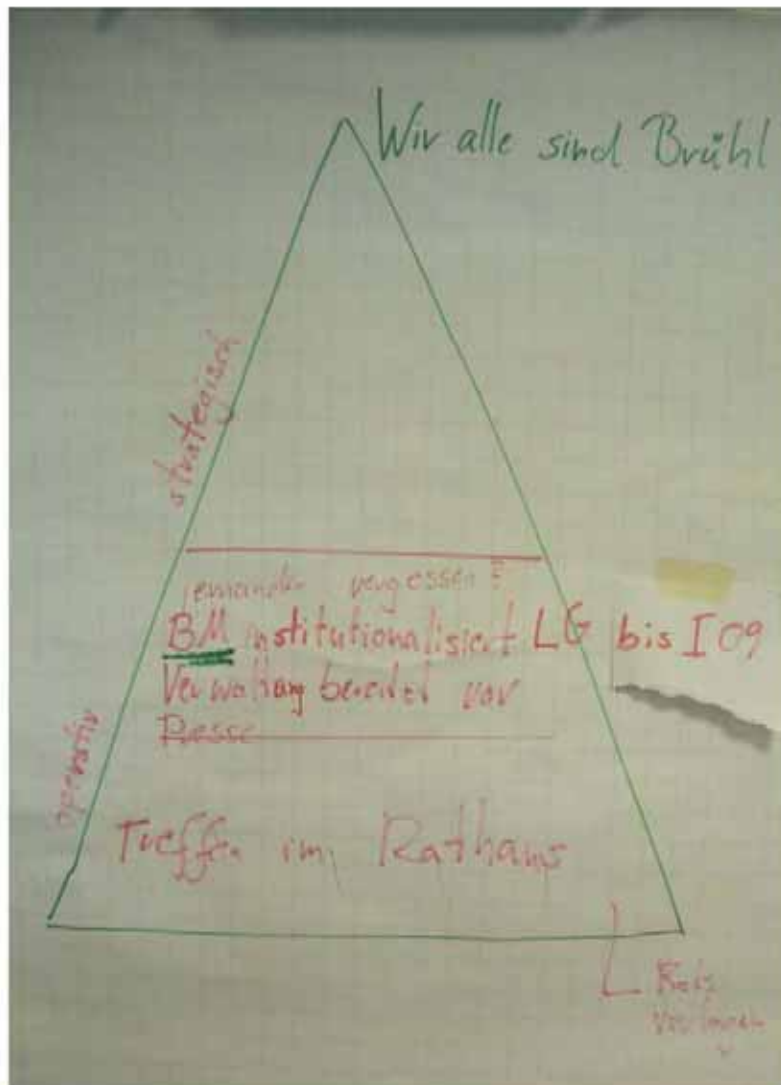 Wir alle sind Brühl
strategisch
jemanden vergessen?
BM institutionalisiert LG bis I 09
Verwaltung bereitet vor
Presse
operativ
Treffen im Rathaus